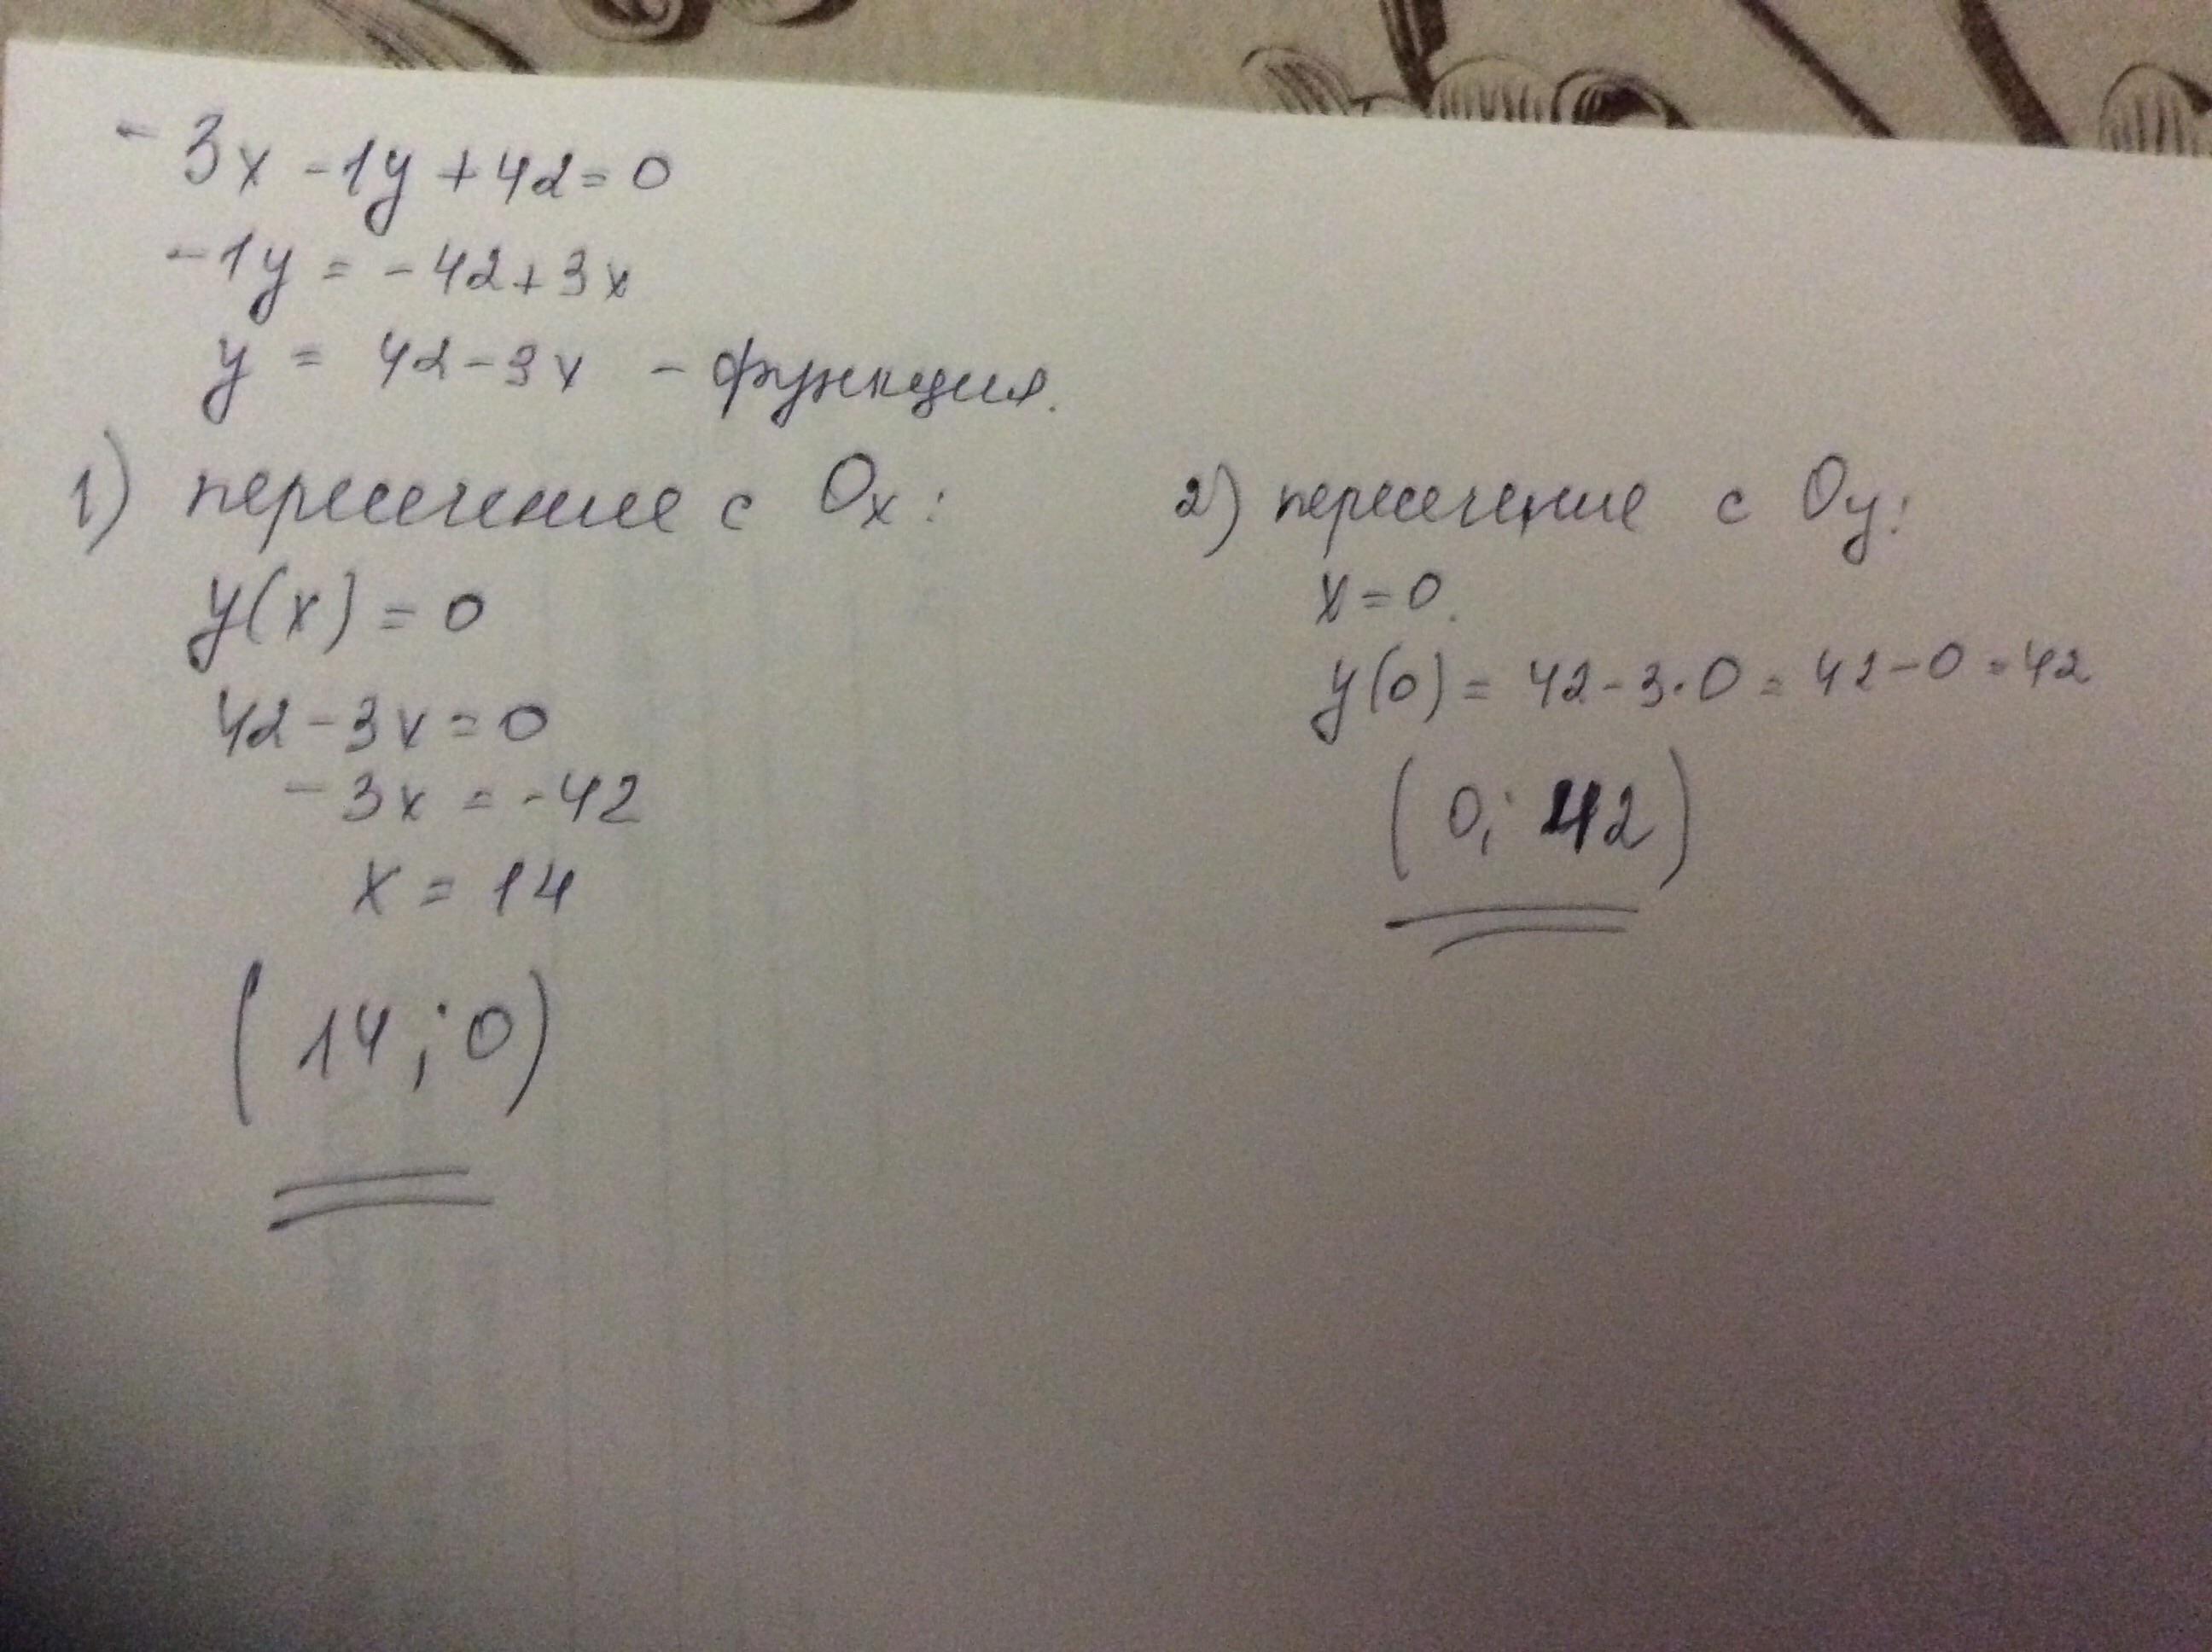 - 3x - 1y + 42 = 0
- 1y = - 42 + 3x
y = 42 - 3x - функция.
1) пересечение с Ox:
y(x) = 0
42 - 3x = 0
- 3x = - 42
x = 14
(14; 0)
2) пересечение с Oy:
x = 0.
y(0) = 42 - 3 · 0 = 42 - 0 = 42
(0; 42)